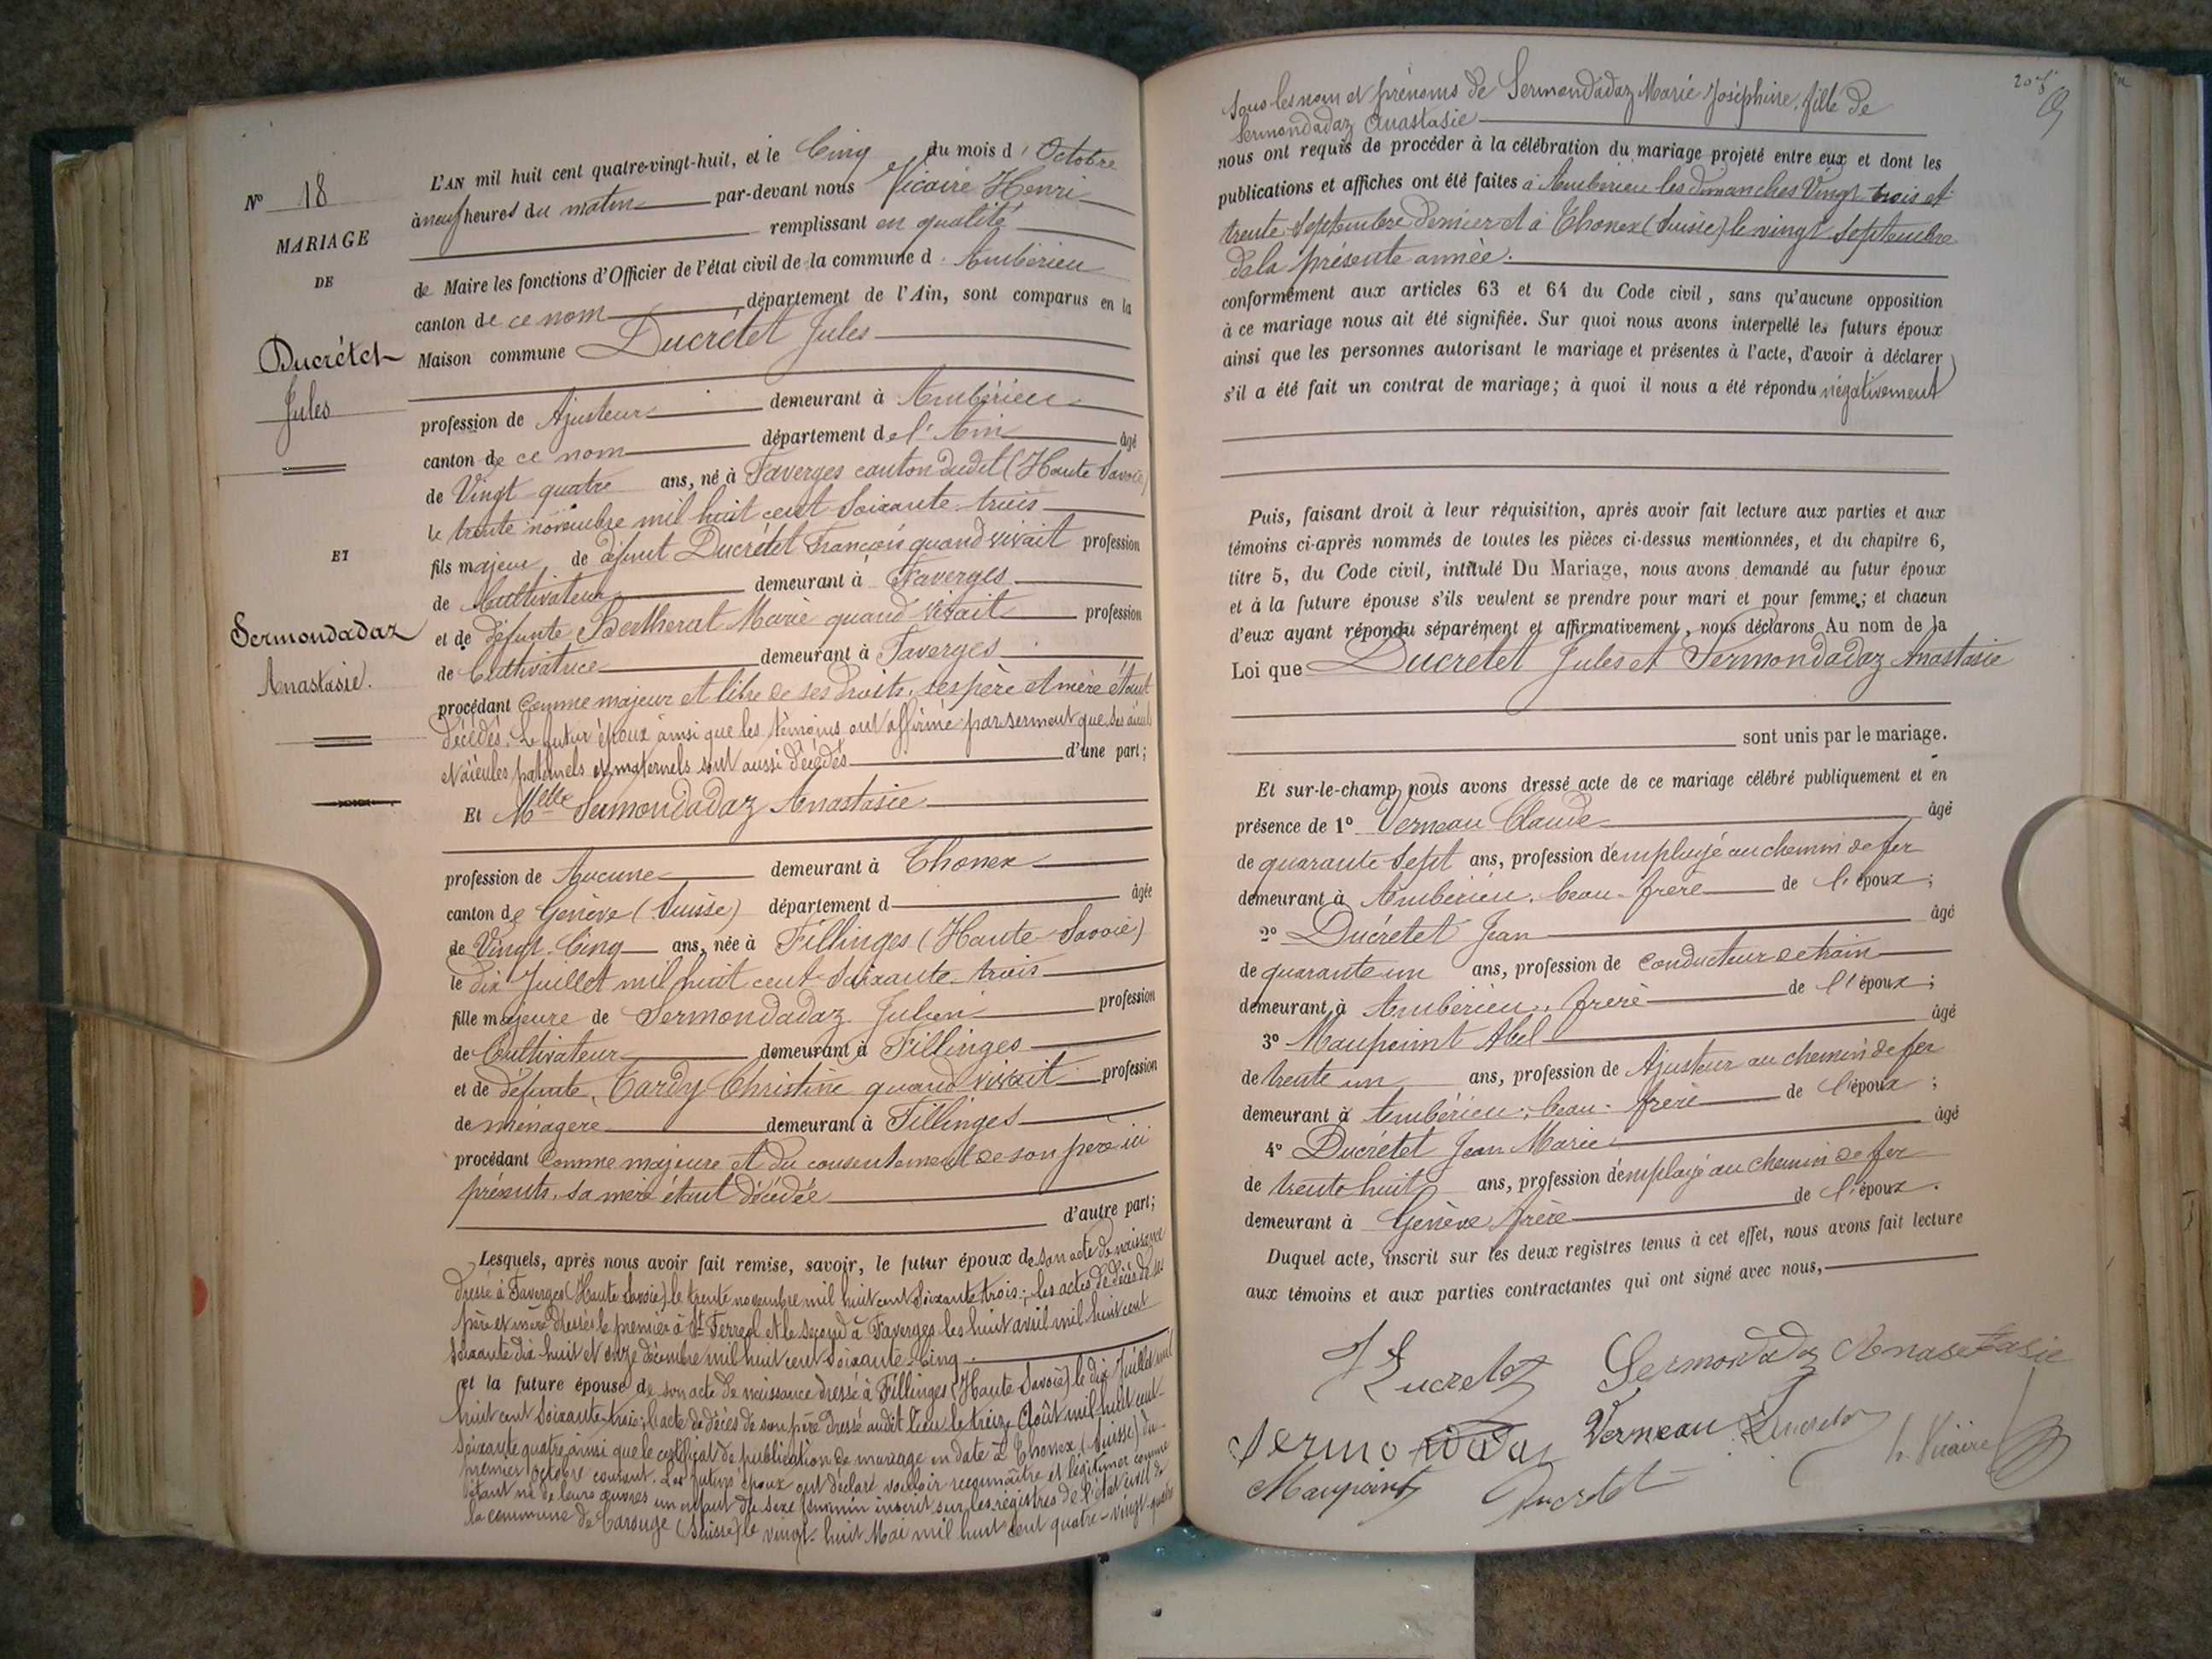 L'AN mil huit cent quatre-vingt-huit, et le Cinq du mois d' Octobre
à neuf heures du matin par-devant nous Vicaire Henri
remplissant en qualité
de Maire les fonctions d'Officier de l'état civil de la commune d' Ambérieu
canton de ce nom département de l'Ain, sont comparus en la
Maison commune Ducrétet Jules
profession de Ajusteur demeurant à Ambérieu
canton de ce nom département de l'Ain âgé
de Vingt quatre ans, né à Faverges canton dudit (Haute Savoie)
le trente novembre mil huit cent soixante-trois
fils majeur de défunt Ducrétet François quand vivait profession
de Cultivateur demeurant à Faverges
et de défunte Bertherat Marie quand vivait profession
de Cultivatrice demeurant à Faverges
procédant comme majeur et libre de ses droits, ses père et mère étant
décédés. Le futur époux ainsi que les témoins ont affirmé par serment que ses aieuls
et aieules paternels et maternels sont aussi décédés d'une part;
Et Melle Sermondadaz Anastasie
profession de Aucune demeurant à Thonex
canton de Genève (Suisse) département d âgée
de Vingt-Cinq ans, née à Fillinges (Haute-Savoie)
le dix Juillet mil huit cent soixante-trois
fille majeure de Sermondadaz Julien profession
de Cultivateur demeurant à Fillinges
et de défunte, Tardy Christine quand vivait profession
de ménagère demeurant à Fillinges
procédant comme majeure et du consentement de son père ici
présents, sa mère étant décédée
d'autre part;
Lesquels, après nous avoir fait remise, savoir, le futur époux de son acte de naissance
dressé à Faverges (Haute Savoie) le trente novembre mil huit cent soixante trois; les actes de décès de ses
père et mère dressés le premier à St Ferreol et le second à Faverges les huit avril mil huit cent
soixante dix huit et onze décembre mil huit cent soixante-cinq
et la future épouse de son acte de naissance dressé à Fillinges (Haute Savoie) le dix Juillet mil
huit cent soixante-trois; l'acte de décès de son père dressé audit lieu le treize Août mil huit cent
soixante quatre ainsi que le certificat de publication de mariage en date à Thonex (Suisse) du
premier octobre courant. Les futurs époux ont déclaré vouloir reconnaître et légitimer comme
étant né de leurs œuvres un enfant du sexe féminin inscrit sur les registres de l'état civil de
la commune de Carouge (Suisse) le vingt-huit Mai mil huit cent quatre-vingt-quatre
No 18
MARIAGE
DE
Ducrétet
Jules
ET
Sermondadaz
Anastasie.
sous les nom et prénoms de Sermondadaz Marie Joséphine, fille de
Sermondadaz Anastasie
nous ont requis de procéder à la célébration du mariage projeté entre eux et dont les
publications et affiches ont été faites à Ambérieu les dimanches Vingt trois et
trente Septembre dernier et à Thonex (Suisse) le vingt Septembre
de la présente année.
conformément aux articles 63 et 64 du Code civil, sans qu'aucune opposition
à ce mariage nous ait été signifiée. Sur quoi nous avons interpellé les futurs époux
ainsi que les personnes autorisant le mariage et présentes à l'acte, d'avoir à déclarer
s'il a été fait un contrat de mariage; à quoi il nous a été répondu négativement
Puis, faisant droit à leur réquisition, après avoir fait lecture aux parties et aux
témoins ci-après nommés de toutes les pièces ci-dessus mentionnées, et du chapitre 6,
titre 5, du Code civil, intitulé Du Mariage, nous avons demandé au futur époux
et à la future épouse s'ils veulent se prendre pour mari et pour femme; et chacun
d'eux ayant répondu séparément et affirmativement, nous déclarons Au nom de la
Loi que Ducretet Jules et Sermondadaz Anastasie
sont unis par le mariage.
Et sur-le-champ nous avons dressé acte de ce mariage célébré publiquement et en
présence de 1° Verneau Claude âgé
de quarante sept ans, profession d'employé au chemin de fer
demeurant à Ambérieu, beau-frère de l'époux;
2° Ducrétet Jean âgé
de quarante un ans, profession de conducteur de train
demeurant à Ambérieu, frère de l'époux;
3° Maupoint Abel âgé
de trente un ans, profession de Ajusteur au chemin de fer
demeurant à Ambérieu; beau-frère de l'époux;
4° Ducrétet Jean Marie âgé
de trente huit ans, profession d'employé au chemin de fer
demeurant à Genève, frère de l'époux.
Duquel acte, inscrit sur les deux registres tenus à cet effet, nous avons fait lecture
aux témoins et aux parties contractantes qui ont signé avec nous,
J Ducretet Sermondadaz Anasetasie
Sermondadaz Verneau Ducretet h. Vicaire
Maupoint Ducretet